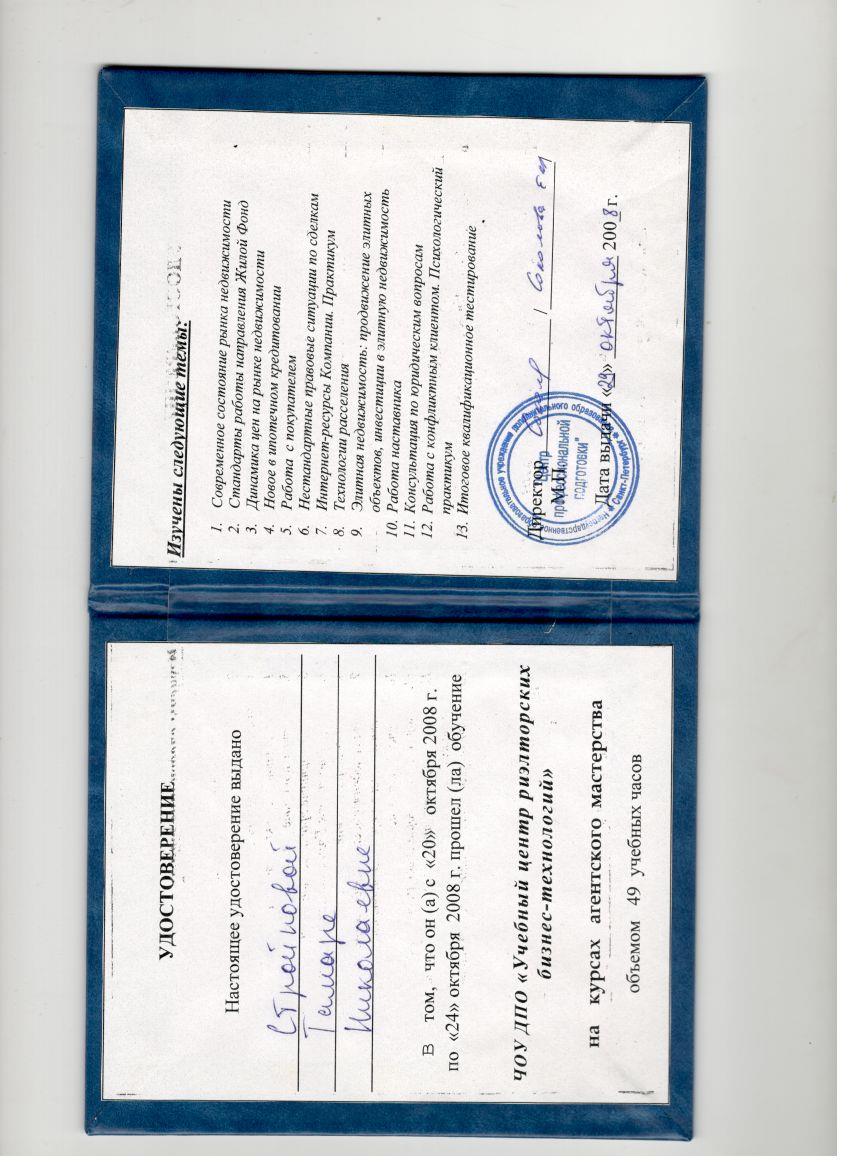 УДОСТОВЕРЕНИЕ
Настоящее удостоверение выдано
Стройновой
Тамаре
Николаевне
В том, что он (а) с «20» октября 2008 г.
по «24» октября 2008 г. прошел (ла) обучение
ЧОУ ДПО «Учебный центр риэлторских
бизнес-технологий»
на курсах агентского мастерства
объемом 49 учебных часов
Изучены следующие темы:
1. Современное состояние рынка недвижимости
2. Стандарты работы направления Жилой Фонд
3. Динамика цен на рынке недвижимости
4. Новое в ипотечном кредитовании
5. Работа с покупателем
6. Нестандартные правовые ситуации по сделкам
7. Интернет-ресурсы Компании. Практикум
8. Технологии расселения
9. Элитная недвижимость: продвижение элитных
объектов, инвестиции в элитную недвижимость
10. Работа наставника
11. Консультация по юридическим вопросам
12. Работа с конфликтным клиентом. Психологический
практикум
13. Итоговое квалификационное тестирование
Директор / Соколова Е М
М.П.
Центр
профессиональной
подготовки"
Санкт-Петербург
Дата выдачи «29» октября 2008 г.